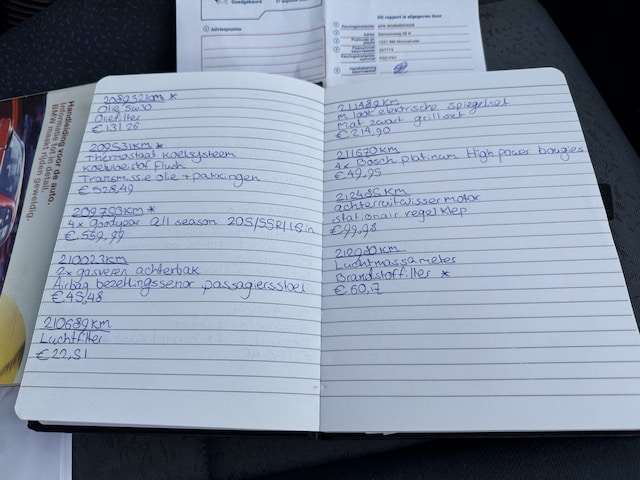 Goedgekeurd
Adviespunten
Dit rapport is afgegeven door
Handleiding voor de auto.
Informatie tot in detail.
BMW maakt rijden geweldig.
208932km *
Olie 5w30
Oliefilter
€131.26
209531km *
Thermostaat koelsysteem
Koelvloeistof flush
Transmissie olie + pakkingen
€528,49
209753km *
4x goodyear all season 205/55R/16in
€559,99
210023km
2x gasveren achterbak
Airbag bezettingssensor passagiersstoel
€45,48
210689km
Luchtfilter
€22,51
211489km
M look elektrische spiegelset
Mat zwart grill set
€214,90
211670km
4x Bosch platinum High power bougies
€49,95
212485km
achterruitwissermotor
stationair regelklep
€99,98
212980km
Luchtmassameter
Brandstoffilter *
€60,17